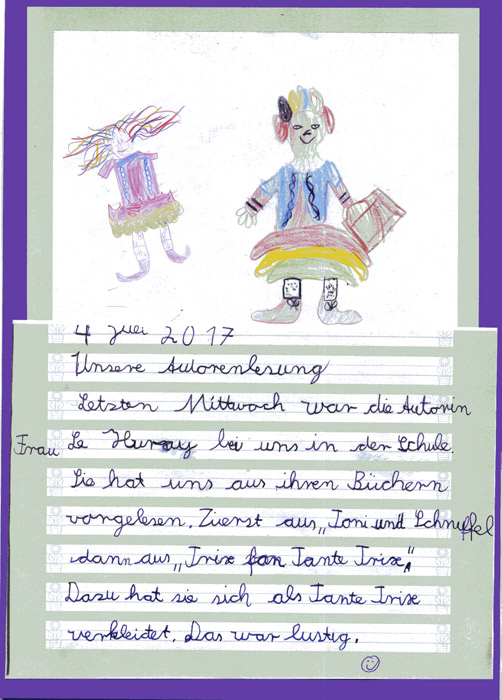 4 Juli 2017
Unsere Autorenlesung
Letzten Mittwoch war die Autorin
Frau Le Huray bei uns in der Schule.
Sie hat uns aus ihren Büchern
vorgelesen. Zuerst aus „Toni und Schnuffel
dann aus „Trixe fan Tante Trixe„
Dazu hat sie sich als Tante Trixe
verkleidet. Das war lustig.